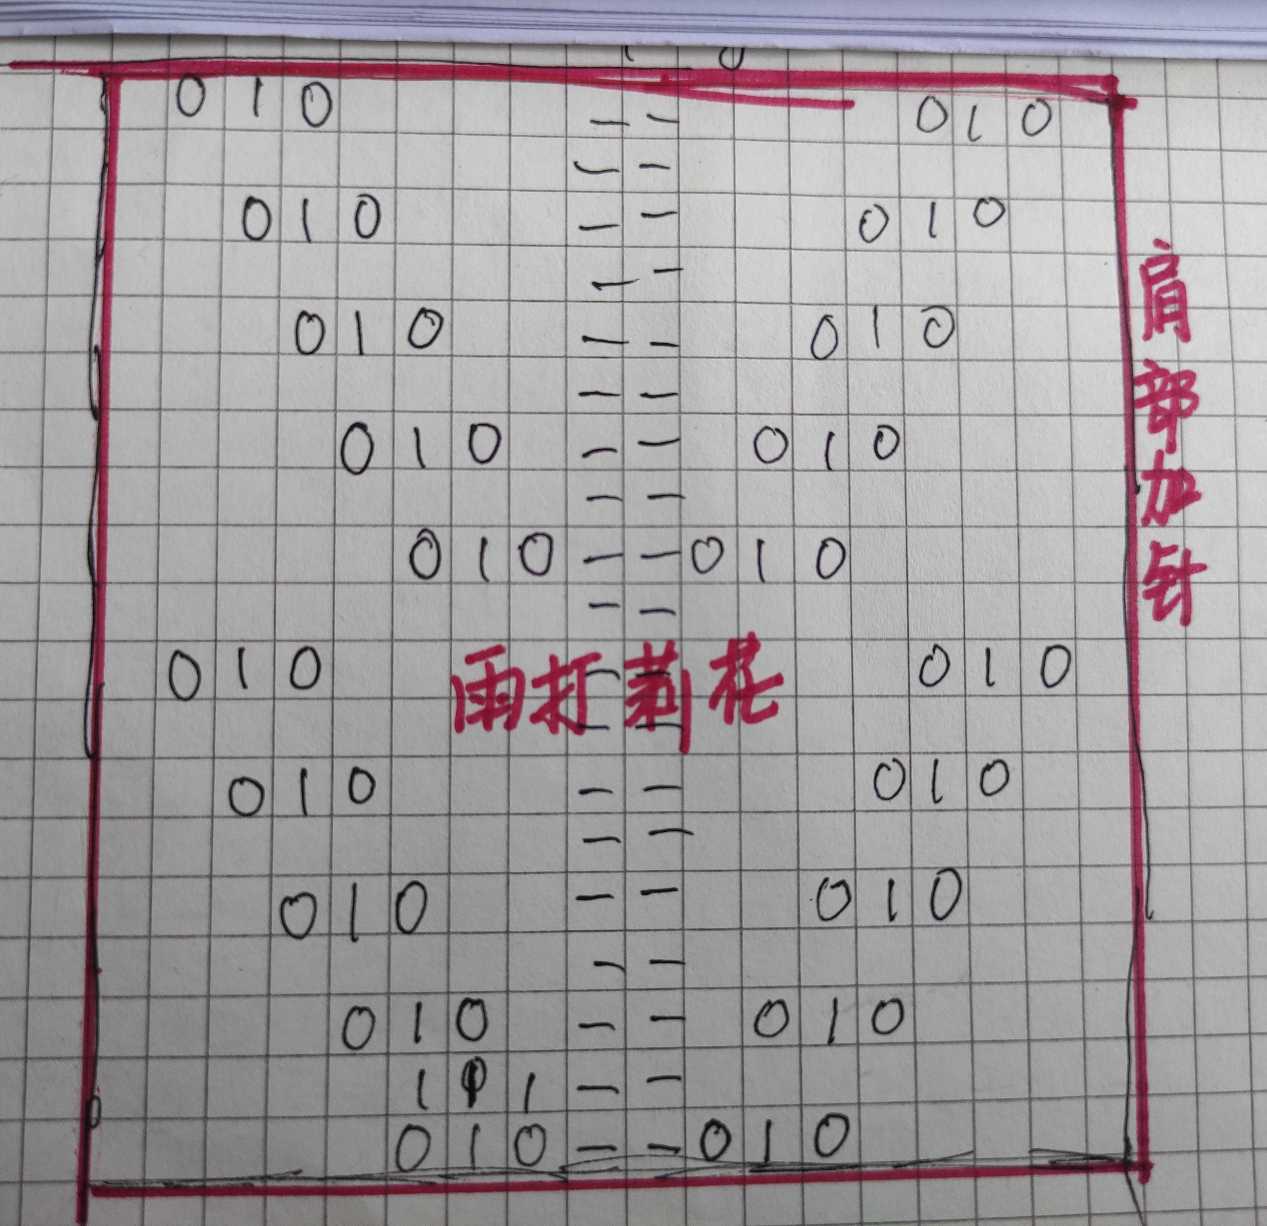 0 1 0 — — 0 1 0
— —
0 1 0 — — 0 1 0
— —
0 1 0 — — 0 1 0
— —
0 1 0 — — 0 1 0
— —
0 1 0 — — 0 1 0
— —
0 1 0 — — 0 1 0
雨打莉花
— —
0 1 0 — — 0 1 0
— —
0 1 0 — — 0 1 0
— —
0 1 0 — — 0 1 0
1 1 — —
0 1 0 — — 0 1 0
肩部加针